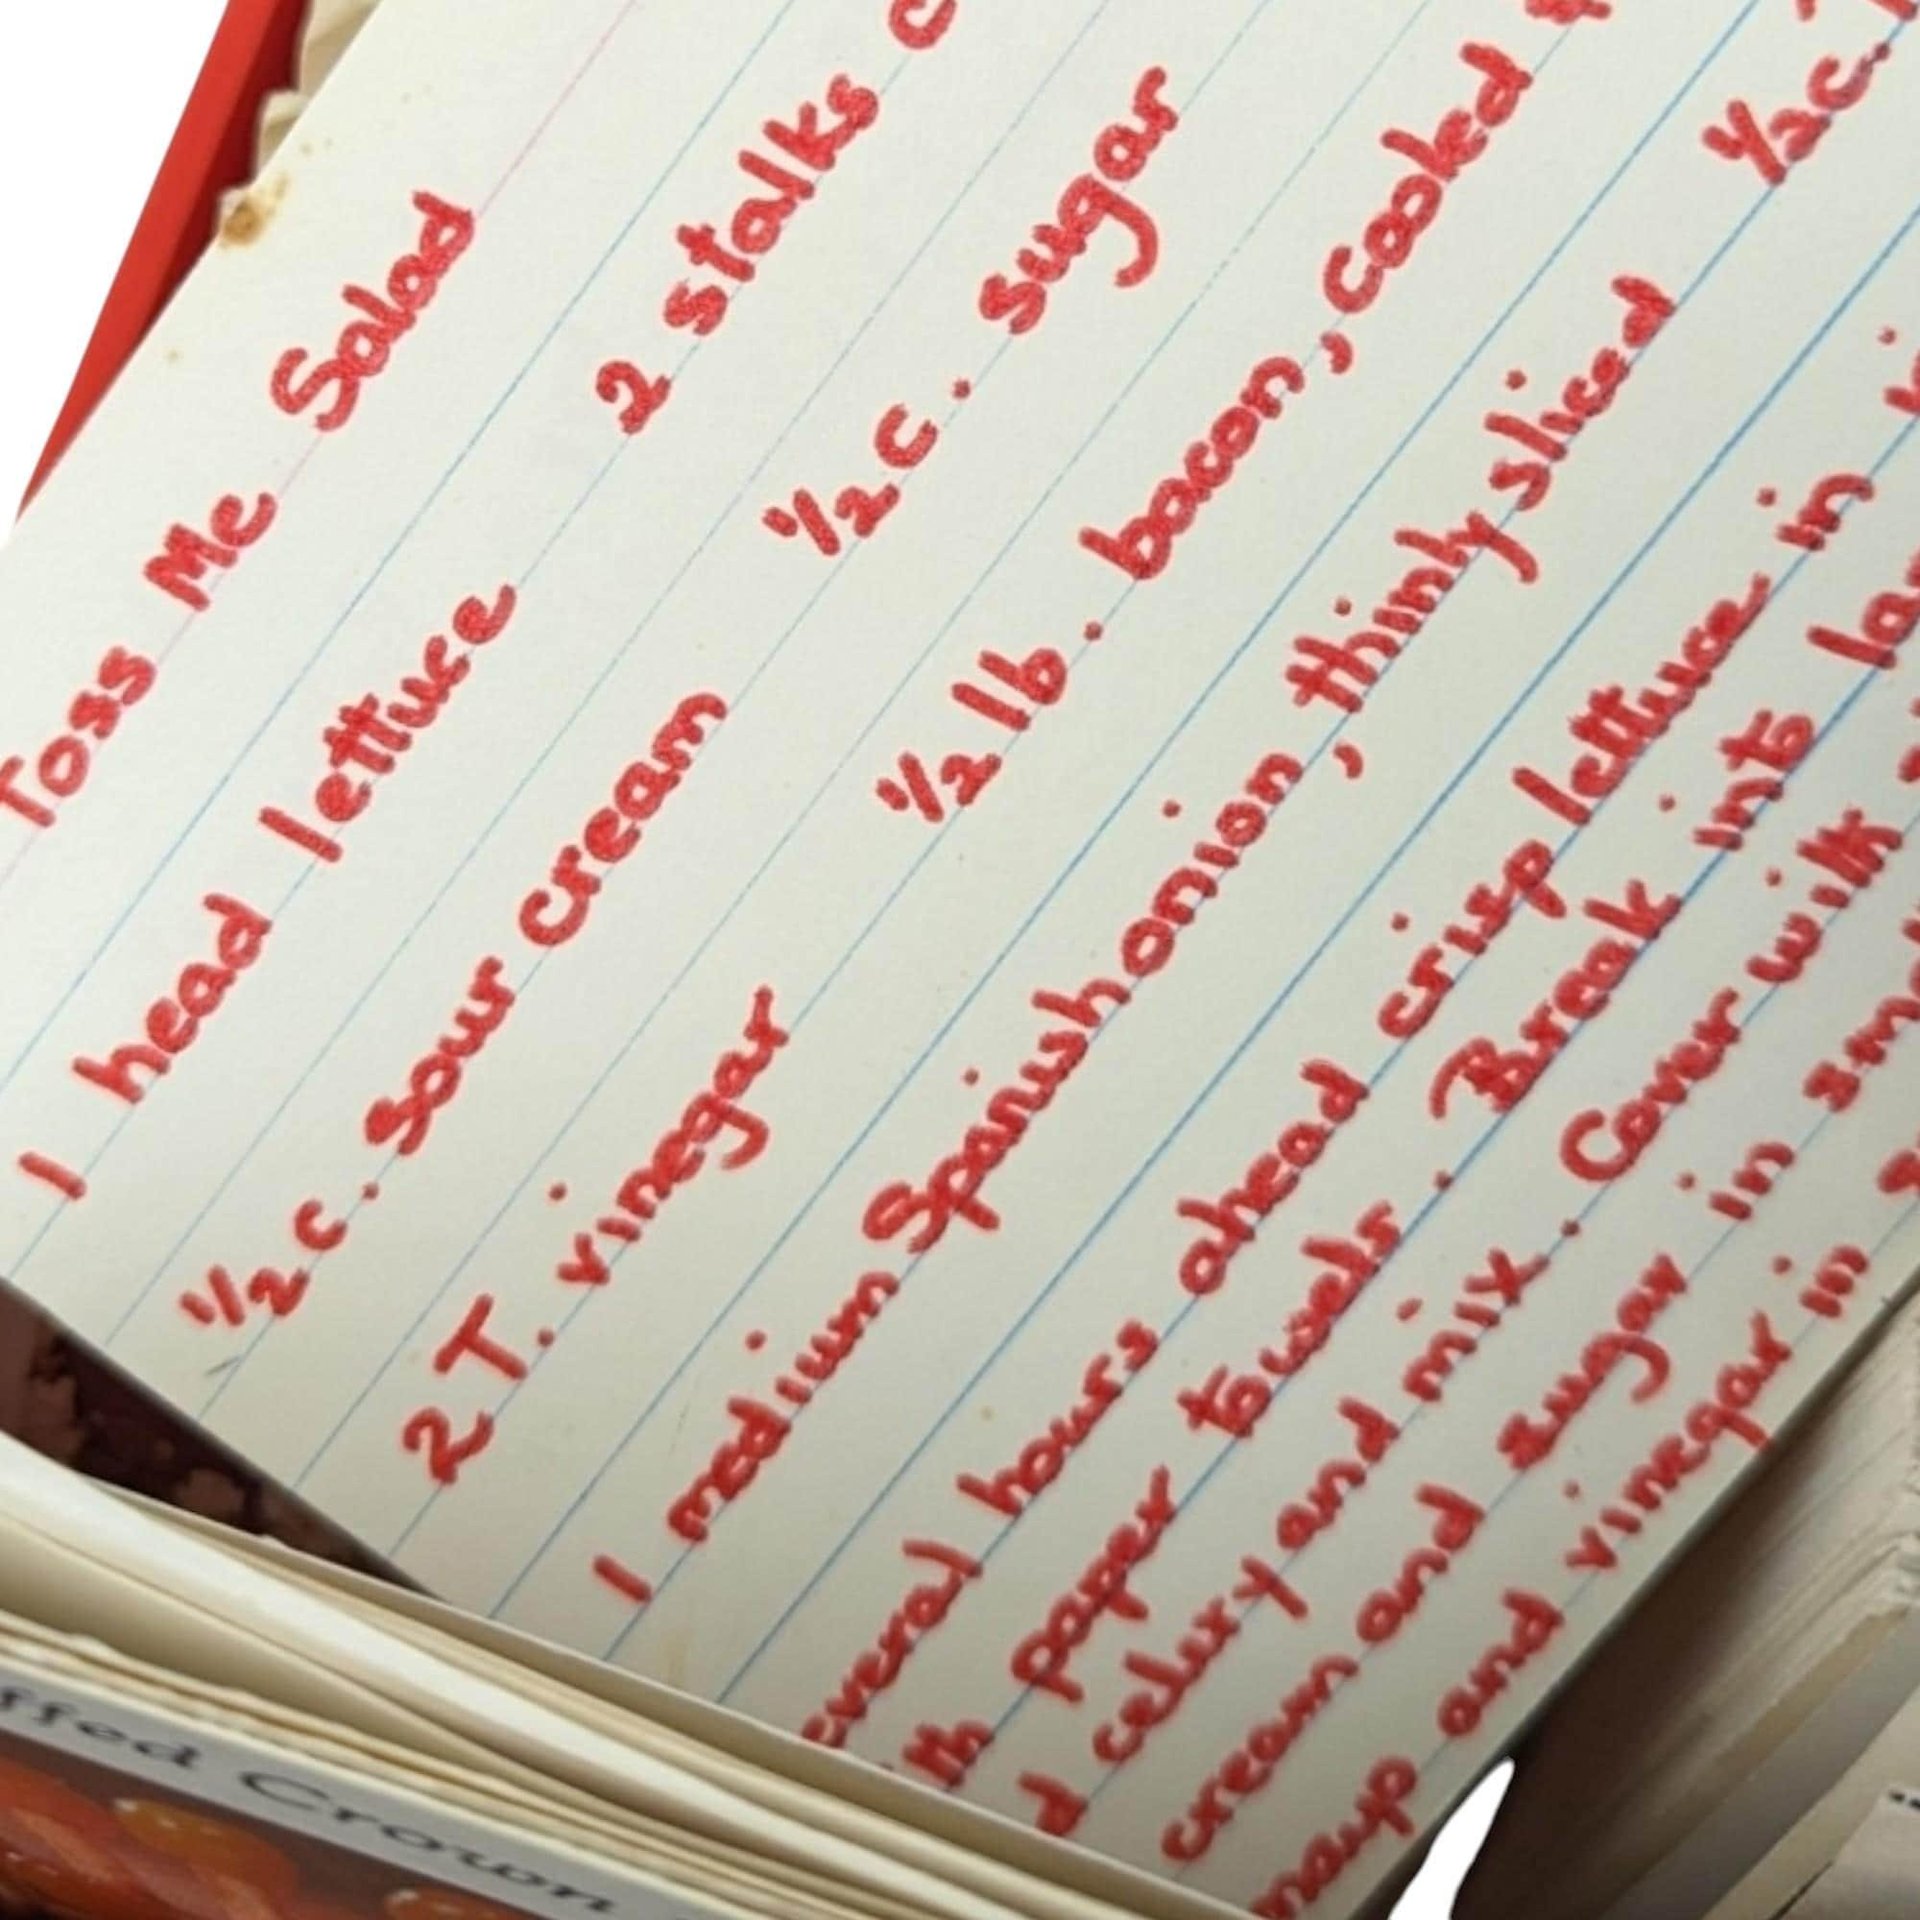 Toss Me Salad
1 head lettuce 2 stalks
½ c. sour cream ½ c. sugar
2 T. vinegar ½ lb. bacon, cooked
1 medium Spanish onion, thinly sliced ⅓ c.
hours ahead crisp lettuce in
paper towels. Break into
celery and mix. Cover with
cream and sugar in
and vinegar in
Crown